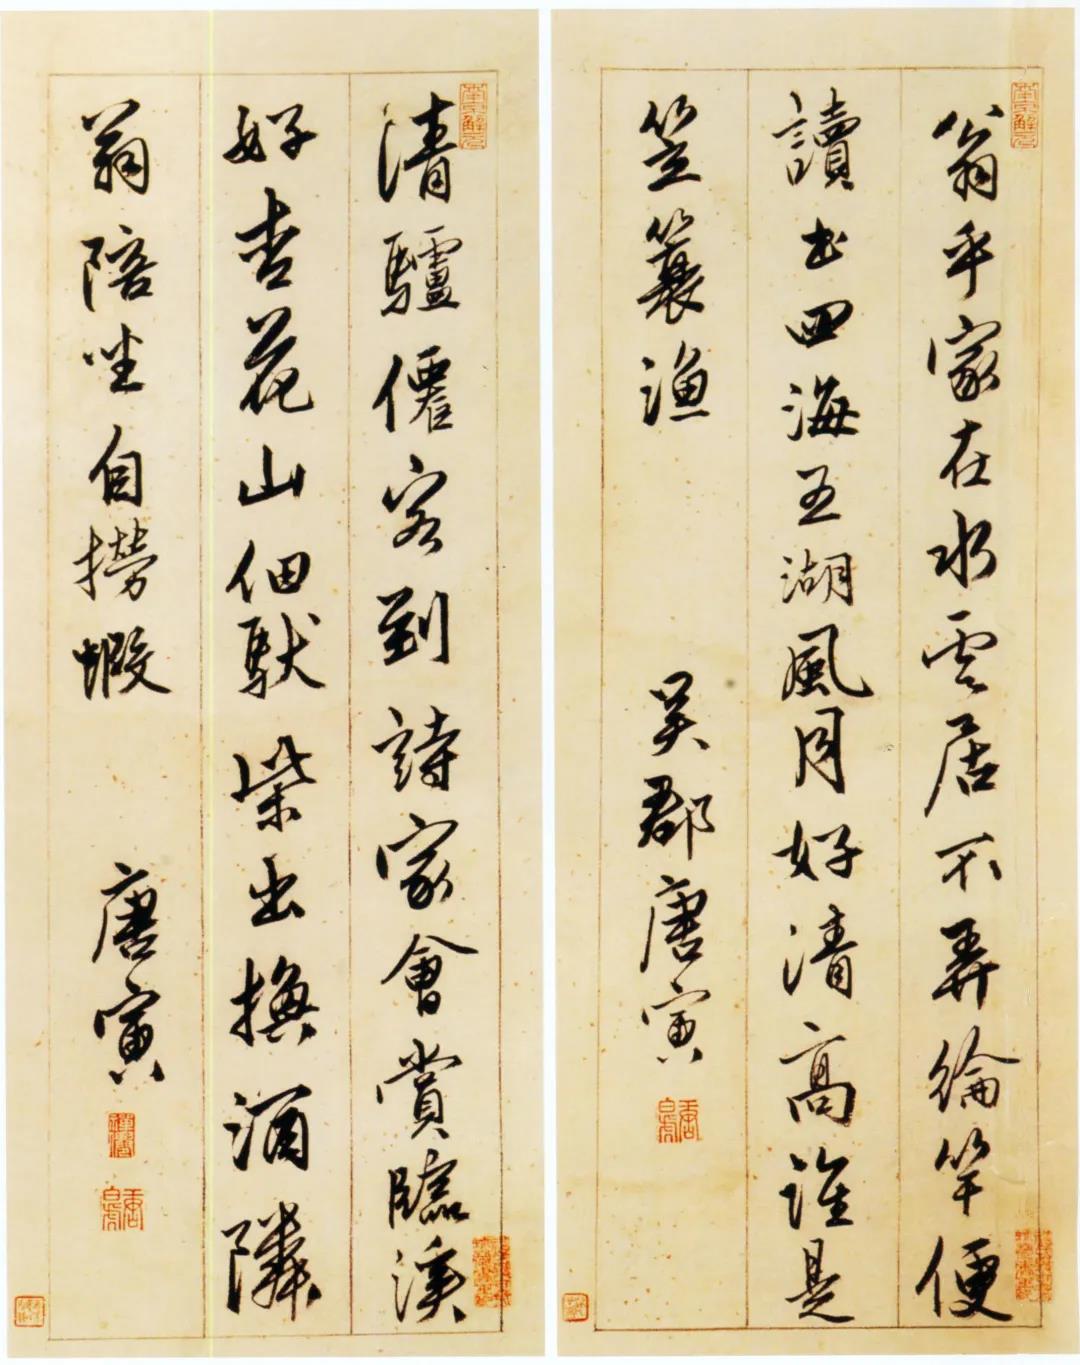 南京解元
翁乎家在水雲居不弄綸竿便
讀書四海五湖風月好清高誰是
笠簑漁 吳郡唐寅
南京解元
清驢僊客到詩家會賞臨溪
好杏花山佃馱柴出換酒隣
翁陪坐自撈蝦 唐寅